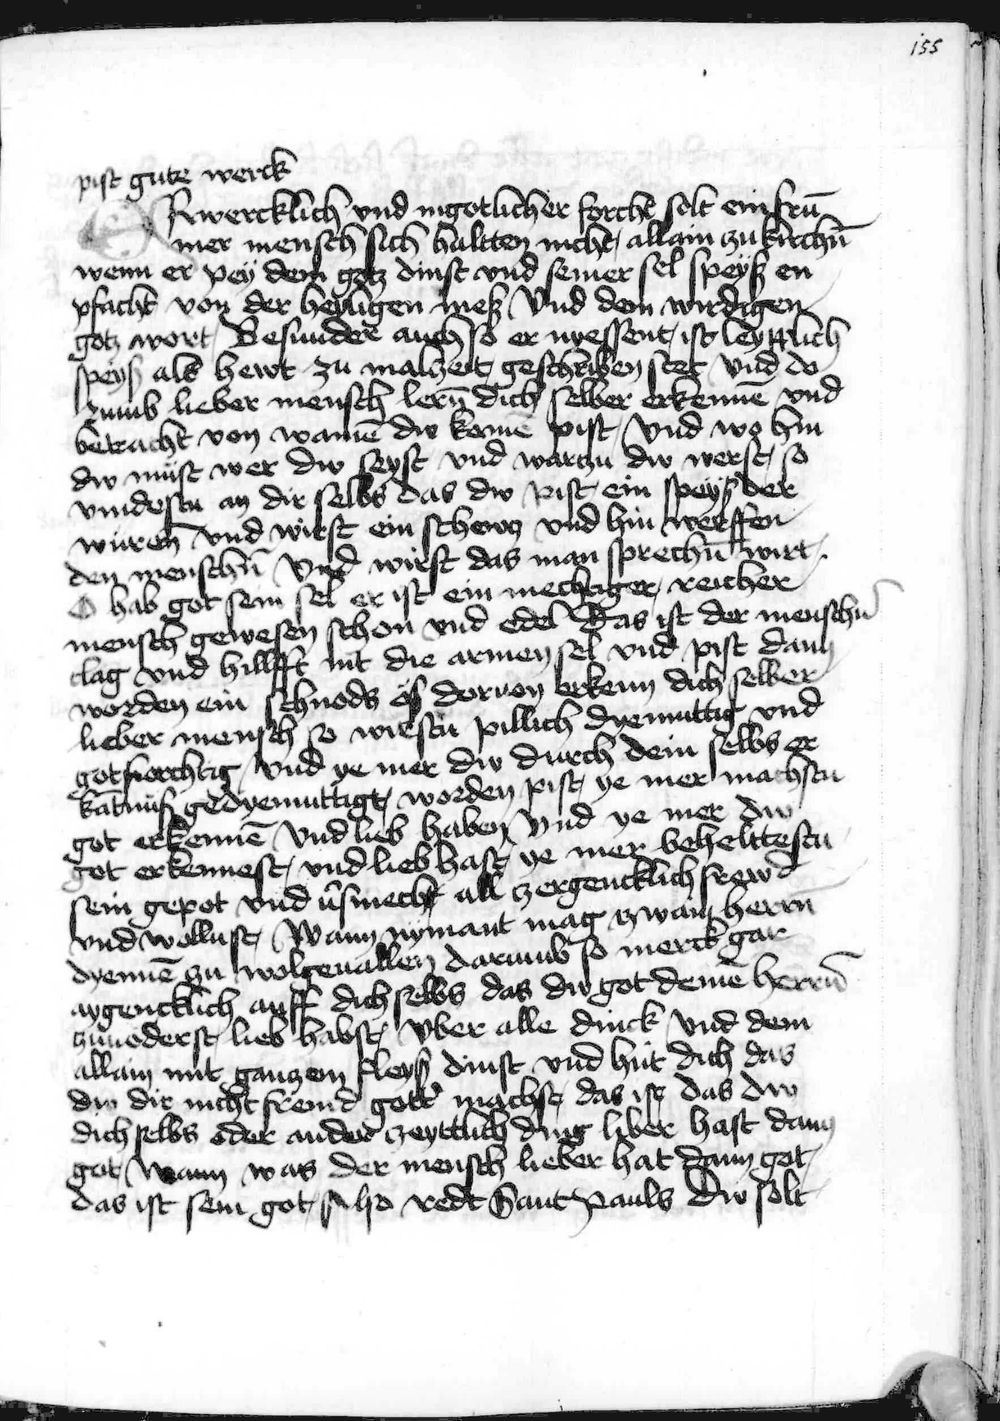 155
pist gute werck
Erwercklich vnd in gotlicher forcht solt ein frū
mer mensch sich haltten nicht allain zu kirchn̄
wenn er pey dem gotz dinst vnd seiner sel speyß en
pfacht von der heyligen meß Vnd dem wirdigen
gotz wort Besunder auch so er nyessent ist leyplich
speyß als hewt zu malzeit geschriben stet Vnd do
rumb lieber mensch lern̄ dich selber erkennē vnd
betracht von wannē dw komē pist Vnd wo hin
dw must wer dw seyst vnd warzu dw werst so
vindestu an dir selbs das dw pist ein speyß der
würen̄ vnd wirst ein schewtz vnd hin werffen
den menschn̄ Vnd wirst das man sprechn̄ wirt
O hab got sein sel er ist ein mechtiger reicher
mensch gewesen schon vnd edel Das ist der menschn̄
clag vnd hillfft nit die armen sel vnd pist dann
worden ein schnods oß dorvon erkenn dich selber
lieber mensch so wirstu pillich dyemuttig vnd
gotfforchtig Vnd ye mer dw durch dein selbs er
kātnuß gedyemuttigt worden pist ye mer machstu
got erkennē Vnd lieb haben Vnd ye mer dw
got erkennest vnd lieb hast ye mer beheltestu
sein gepot vnd v̄smecht all zergencklich frewd
vnd wollust Wann nymant mag zwain herrn̄
dyennē zu wolgeuallen Darumb so merck gar
aygencklich auff dich selbs das dw got deinē herrn̄
zuuoderst lieb habst Vber alle dinck Vnd dem
allain mit ganzem fleyß dinst vnd hut dich das
dw dir nicht fremd gott̄ machst das ist das dw
dich selbs oder ander zeyttlich ding liber hast dann
got Wann was der mensch lieber hat dann got
das ist sein got Also redt Sant Pauls Dw solt